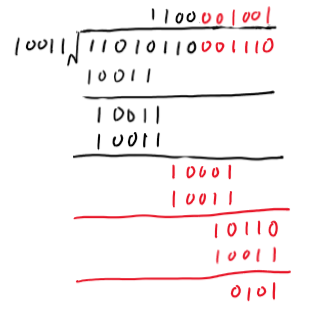 1100001001
10011 11010110001110
10011
10011
10011
10001
10011
10110
10011
0101